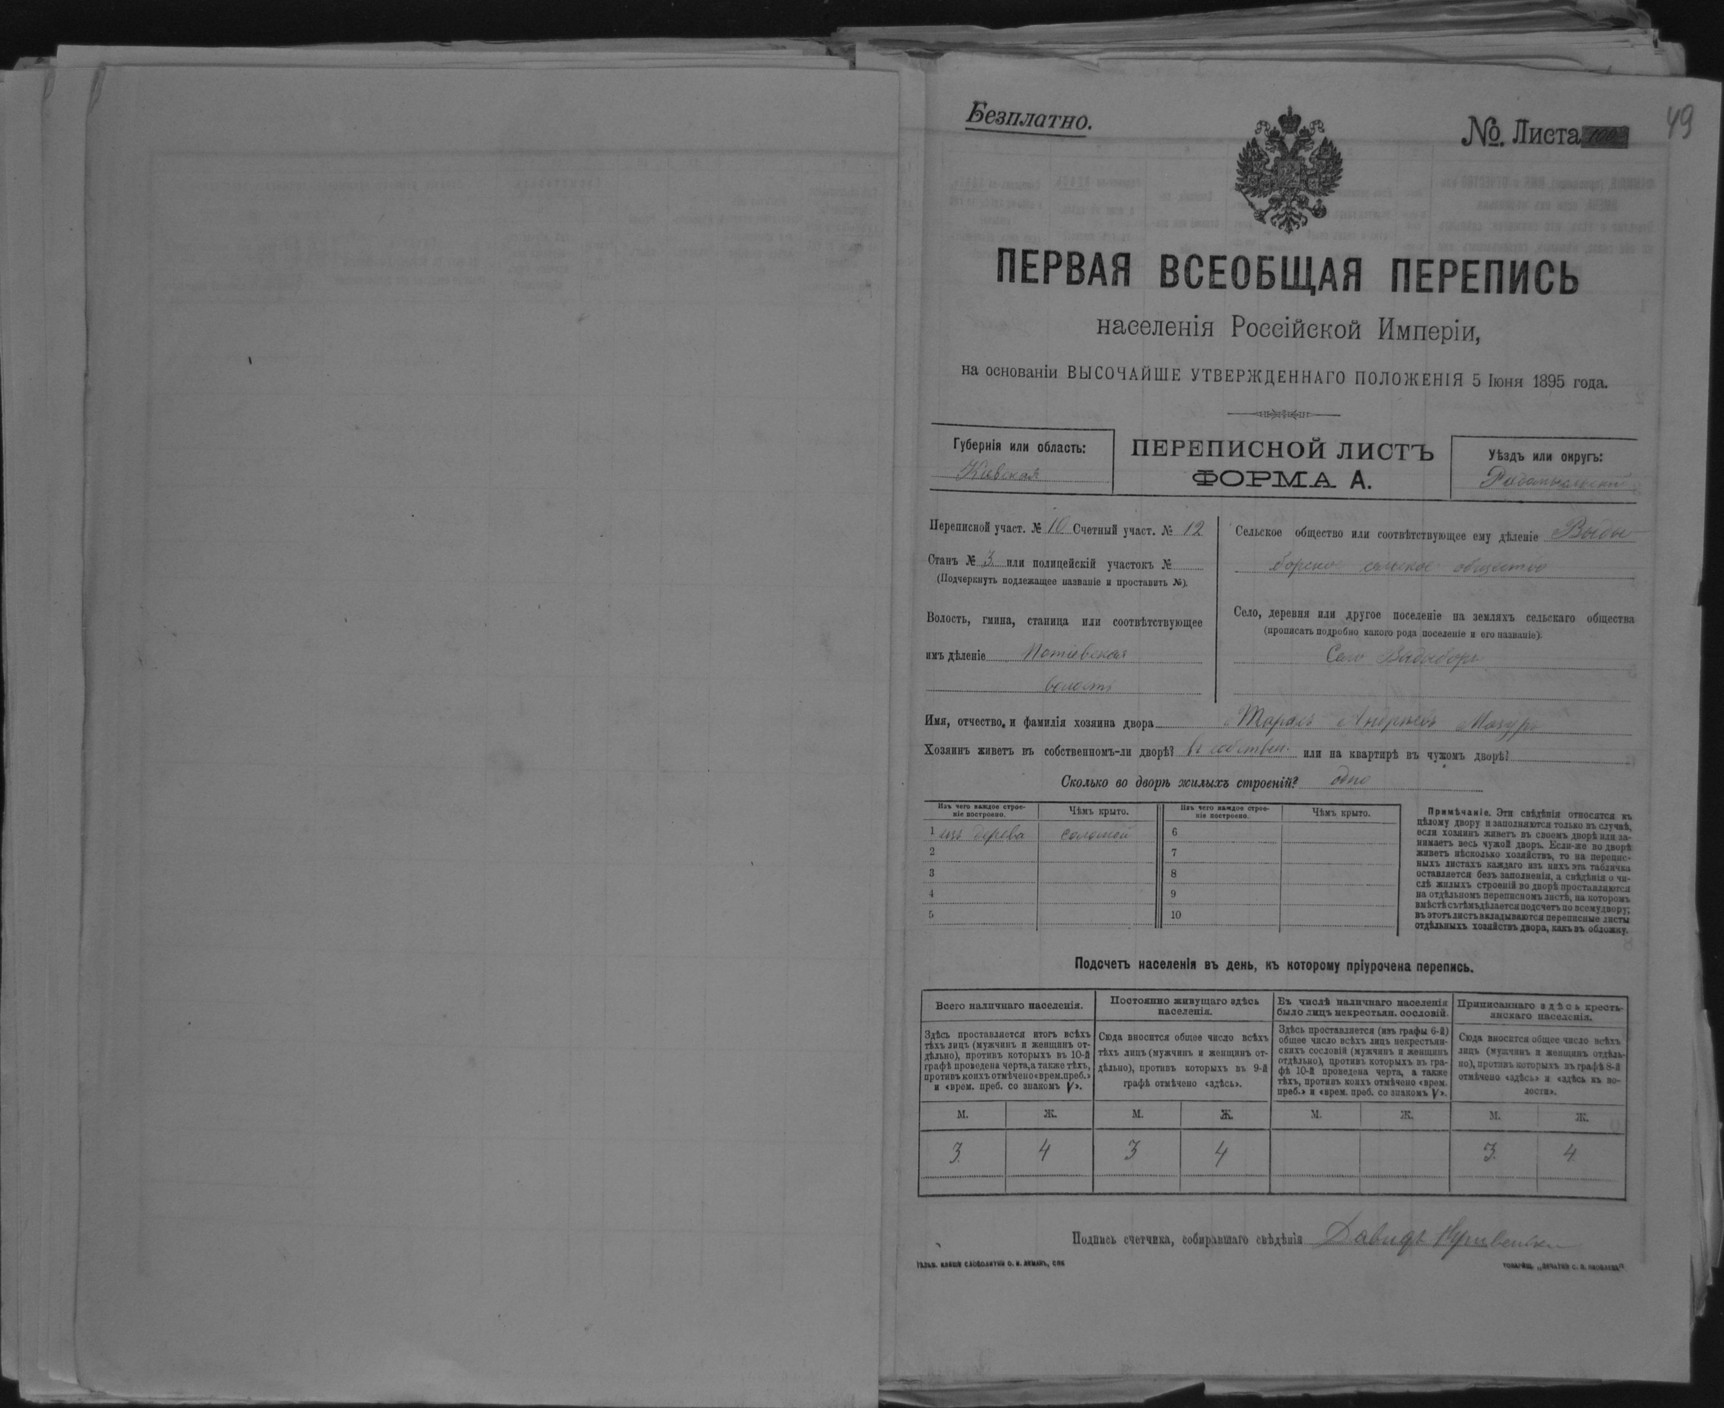 49
Безплатно.
№. Листа
ПЕРВАЯ ВСЕОБЩАЯ ПЕРЕПИСЬ
населенія Россійской Имперіи,
на основаніи ВЫСОЧАЙШЕ УТВЕРЖДЕННАГО ПОЛОЖЕНІЯ 5 Іюня 1895 года.
Губернія или область:
Кіевская
ПЕРЕПИСНОЙ ЛИСТЪ
ФОРМА А.
Уѣздъ или округъ:
Радомысльскій
Переписной участ. № 10 Счетный участ. № 12
Станъ № 3 или полицейскій участокъ №
(Подчеркнуть подлежащее названіе и проставить №).
Волость, гмина, станица или соотвѣтствующее
имъ дѣленіе Потіевская
волость
Сельское общество или соотвѣтствующее ему дѣленіе Выды-
борское сельское общество
Село, деревня или другое поселеніе на земляхъ сельскаго общества
(прописать подробно какого рода поселеніе и его названіе).
Село Выдыборъ
Имя, отчество, и фамилія хозяина двора Тарасъ Андреевъ Мазуръ
Хозяинъ живетъ въ собственномъ-ли дворѣ? въ собствен. или на квартирѣ въ чужомъ дворѣ?
Сколько во дворѣ жилыхъ строеній? одно
Изъ чего каждое строе-
ніе построено.
Чѣмъ крыто.
Изъ чего каждое строе-
ніе построено.
Чѣмъ крыто.
1 изъ дерева соломой 6
2 7
3 8
4 9
5 10
Примѣчаніе. Эти свѣдѣнія относятся къ
цѣлому двору и заполняются только въ случаѣ,
если хозяинъ живетъ въ своемъ дворѣ или за-
нимаетъ весь чужой дворъ. Если-же во дворѣ
живетъ нѣсколько хозяйствъ, то на перепис-
ныхъ листахъ каждаго изъ нихъ эта табличка
оставляется безъ заполненія, а свѣдѣнія о чи-
слѣ жилыхъ строеній во дворѣ проставляются
на отдѣльномъ переписномъ листѣ, на которомъ
вмѣстѣ съ тѣмъ дѣлается подсчетъ по всему двору;
въ этотъ листъ вкладываются переписные листы
отдѣльныхъ хозяйствъ двора, какъ въ обложку.
Подсчетъ населенія въ день, къ которому пріурочена перепись.
Всего наличнаго населенія.
Здѣсь проставляется итогъ всѣхъ
тѣхъ лицъ (мужчинъ и женщинъ от-
дѣльно), противъ которыхъ въ 10-й
графѣ проведена черта, а также тѣхъ,
противъ коихъ отмѣчено «врем. преб.»
и «врем. преб. со знакомъ V».
Постоянно живущаго здѣсь
населенія.
Сюда вносится общее число всѣхъ
тѣхъ лицъ (мужчинъ и женщинъ от-
дѣльно), противъ которыхъ въ 9-й
графѣ отмѣчено «здѣсь».
Въ числѣ наличнаго населенія
было лицъ некрестьян. сословій.
Здѣсь проставляется (изъ графы 6-й)
общее число всѣхъ лицъ некрестьян-
скихъ сословій (мужчинъ и женщинъ
отдѣльно), противъ которыхъ въ гра-
фѣ 10-й проведена черта, а также
тѣхъ, противъ коихъ отмѣчено «врем.
преб.» и «врем. преб. со знакомъ V».
Приписаннаго здѣсь кресть-
янскаго населенія.
Сюда вносится общее число всѣхъ
лицъ (мужчинъ и женщинъ отдѣль-
но), противъ которыхъ въ графѣ 8-й
отмѣчено «здѣсь» и «здѣсь къ во-
лости».
М. Ж. М. Ж. М. Ж. М. Ж.
3 4 3 4 3 4
Подпись счетчика, собиравшаго свѣдѣнія Давидъ